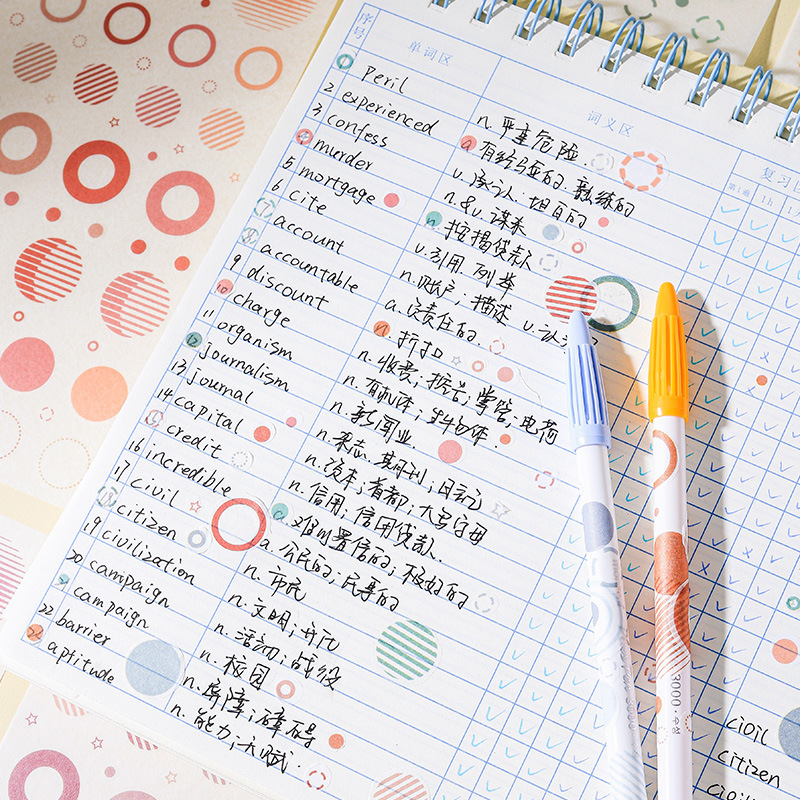 序号 单词区 词义区 复习区
第1遍 1h
Peril n. 严重危险.
2 experienced a 有经验的.熟练的
3 confess v.承认.坦白的
4 murder n.&v.谋杀
5 mortgage n.按揭贷款
6 cite v.引用.列举
7 account n.账户;描述 v.认
8 accountable a.负责任的.
9 discount n.折扣
10 charge n.收费;指责;掌管;电荷
11 organism n.有机体;生物体.
12 journalism n.新闻业
13 journal n.杂志.期刊;日记
14 capital n.资本;首都;大写字母
15 credit n.信用;信用贷款.
16 incredible a.难以置信的;极好的
17 civil a.公民的;民事的
18 citizen n.市民
19 civilization n.文明;开化
20 campaign n.活动;战役
21 campaign n.校园
22 barrier n.屏障;障碍
23 aptitude n.能力;天赋.
civil
citizen
3000